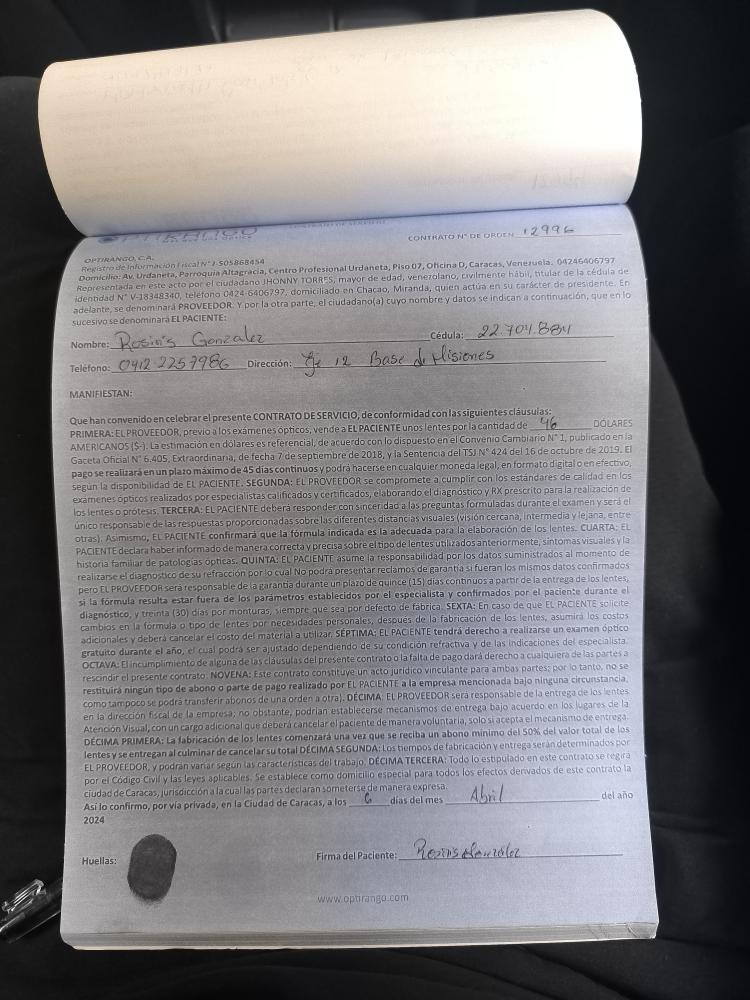 CONTRATO N° DE ORDEN 12996
OPTIRANGO, C.A.
Registro de Información Fiscal N° J-505868454
Domicilio: Av. Urdaneta, Parroquia Altagracia, Centro Profesional Urdaneta, Piso 07, Oficina D, Caracas, Venezuela. 04246406797
Representada en este acto por el ciudadano JHONNY TORRES, mayor de edad, venezolano, civilmente hábil, titular de la cédula de
identidad N° V-18348340, teléfono 0424-6406797, domiciliado en Chacao, Miranda, quien actúa en su carácter de presidente. En
adelante, se denominará PROVEEDOR. Y por la otra parte, el ciudadano(a) cuyo nombre y datos se indican a continuación, que en lo
sucesivo se denominará EL PACIENTE:
Nombre: Rosinis Gonzalez Cédula: 22.704.884
Teléfono: 0412 2257986 Dirección: Eje 12 Base de Misiones
MANIFIESTAN:
Que han convenido en celebrar el presente CONTRATO DE SERVICIO, de conformidad con las siguientes cláusulas:
PRIMERA: EL PROVEEDOR, previo a los exámenes ópticos, vende a EL PACIENTE unos lentes por la cantidad de 46 DÓLARES
AMERICANOS ($-). La estimación en dólares es referencial, de acuerdo con lo dispuesto en el Convenio Cambiario N° 1, publicado en la
Gaceta Oficial N° 6.405, Extraordinaria, de fecha 7 de septiembre de 2018, y la Sentencia del TSJ N° 424 del 16 de octubre de 2019. El
pago se realizará en un plazo máximo de 45 días continuos y podrá hacerse en cualquier moneda legal, en formato digital o en efectivo,
según la disponibilidad de EL PACIENTE. SEGUNDA: EL PROVEEDOR se compromete a cumplir con los estándares de calidad en los
exámenes ópticos realizados por especialistas calificados y certificados, elaborando el diagnóstico y RX prescrito para la realización de
los lentes o prótesis. TERCERA: EL PACIENTE deberá responder con sinceridad a las preguntas formuladas durante el examen y será el
único responsable de las respuestas proporcionadas sobre las diferentes distancias visuales (visión cercana, intermedia y lejana, entre
otras). Asimismo, EL PACIENTE confirmará que la fórmula indicada es la adecuada para la elaboración de los lentes. CUARTA: EL
PACIENTE declara haber informado de manera correcta y precisa sobre el tipo de lentes utilizados anteriormente, síntomas visuales y la
historia familiar de patologías ópticas. QUINTA: EL PACIENTE asume la responsabilidad por los datos suministrados al momento de
realizarse el diagnostico de su refracción por lo cual No podrá presentar reclamos de garantía si fueron los mismos datos confirmados
pero EL PROVEEDOR será responsable de la garantía durante un plazo de quince (15) días continuos a partir de la entrega de los lentes,
si la fórmula resulta estar fuera de los parámetros establecidos por el especialista y confirmados por el paciente durante el
diagnóstico, y treinta (30) días por monturas, siempre que sea por defecto de fábrica. SEXTA: En caso de que EL PACIENTE solicite
cambios en la formula o tipo de lentes por necesidades personales, después de la fabricación de los lentes, asumirá los costos
adicionales y deberá cancelar el costo del material a utilizar. SÉPTIMA: EL PACIENTE tendrá derecho a realizarse un examen óptico
gratuito durante el año, el cual podrá ser ajustado dependiendo de su condición refractiva y de las indicaciones del especialista.
OCTAVA: El incumplimiento de alguna de las cláusulas del presente contrato o la falta de pago dará derecho a cualquiera de las partes a
rescindir el presente contrato. NOVENA: Este contrato constituye un acto jurídico vinculante para ambas partes; por lo tanto, no se
restituirá ningún tipo de abono o parte de pago realizado por EL PACIENTE a la empresa mencionada bajo ninguna circunstancia,
como tampoco se podrá transferir abonos de una orden a otra). DÉCIMA: EL PROVEEDOR será responsable de la entrega de los lentes
en la dirección fiscal de la empresa; no obstante, podrían establecerse mecanismos de entrega bajo acuerdo en los lugares de la
Atención Visual, con un cargo adicional que deberá cancelar el paciente de manera voluntaria, solo si acepta el mecanismo de entrega.
DÉCIMA PRIMERA: La fabricación de los lentes comenzará una vez que se reciba un abono mínimo del 50% del valor total de los
lentes y se entregan al culminar de cancelar su total DÉCIMA SEGUNDA: Los tiempos de fabricación y entrega serán determinados por
EL PROVEEDOR, y podrán variar según las características del trabajo. DÉCIMA TERCERA: Todo lo estipulado en este contrato se regirá
por el Código Civil y las leyes aplicables. Se establece como domicilio especial para todos los efectos derivados de este contrato la
ciudad de Caracas, jurisdicción a la cual las partes declaran someterse de manera expresa.
Así lo confirmo, por vía privada, en la Ciudad de Caracas, a los 6 días del mes Abril del año
2024
Huellas: Firma del Paciente: Rosinis Gonzalez
www.optirango.com